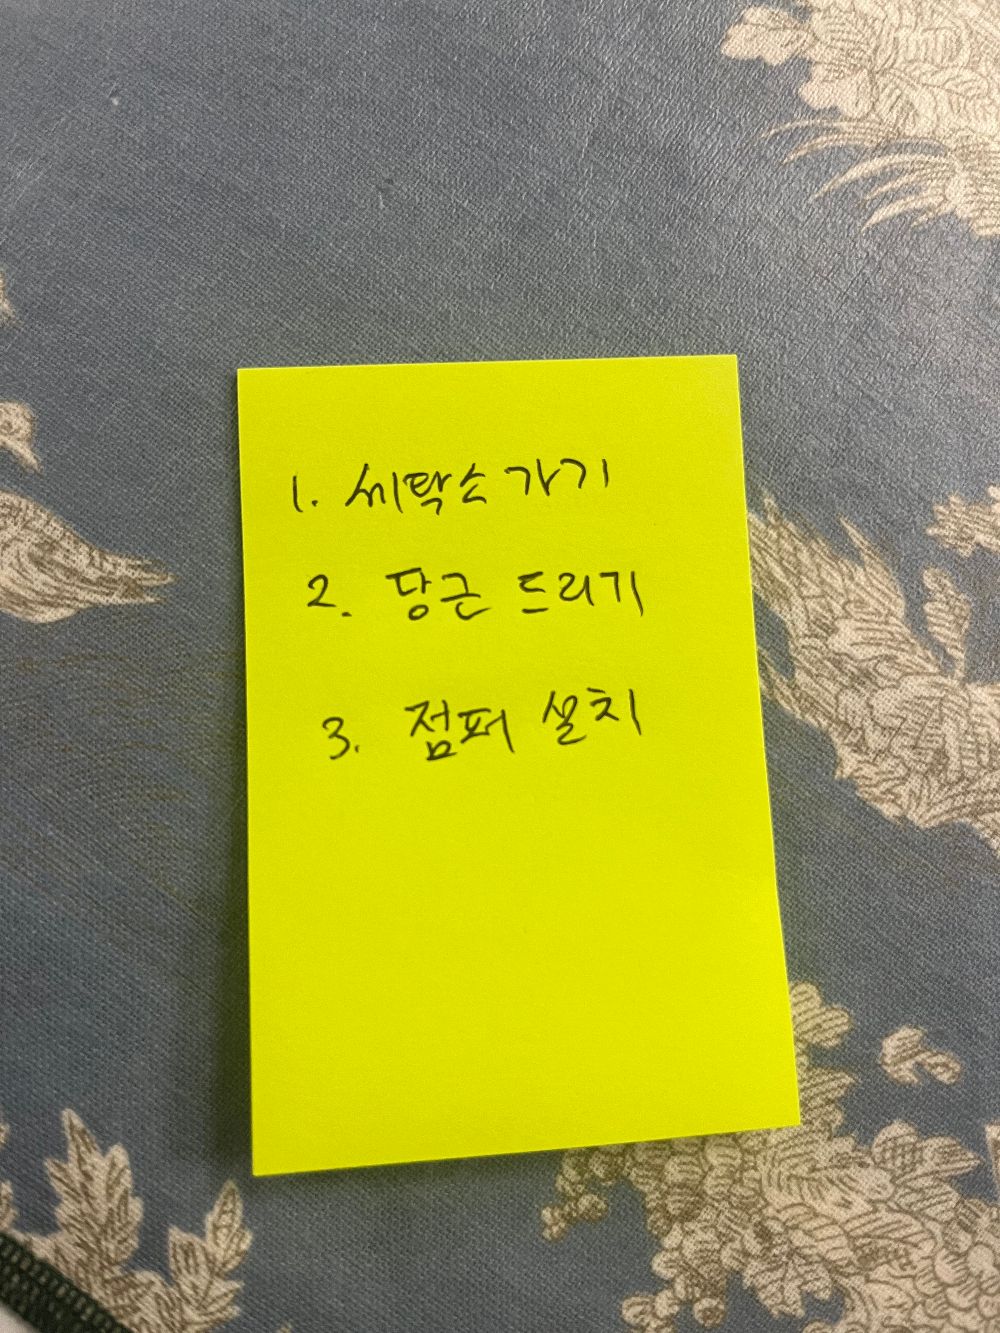 1. 세탁소 가기
2. 당근 드리기
3. 점퍼 설치